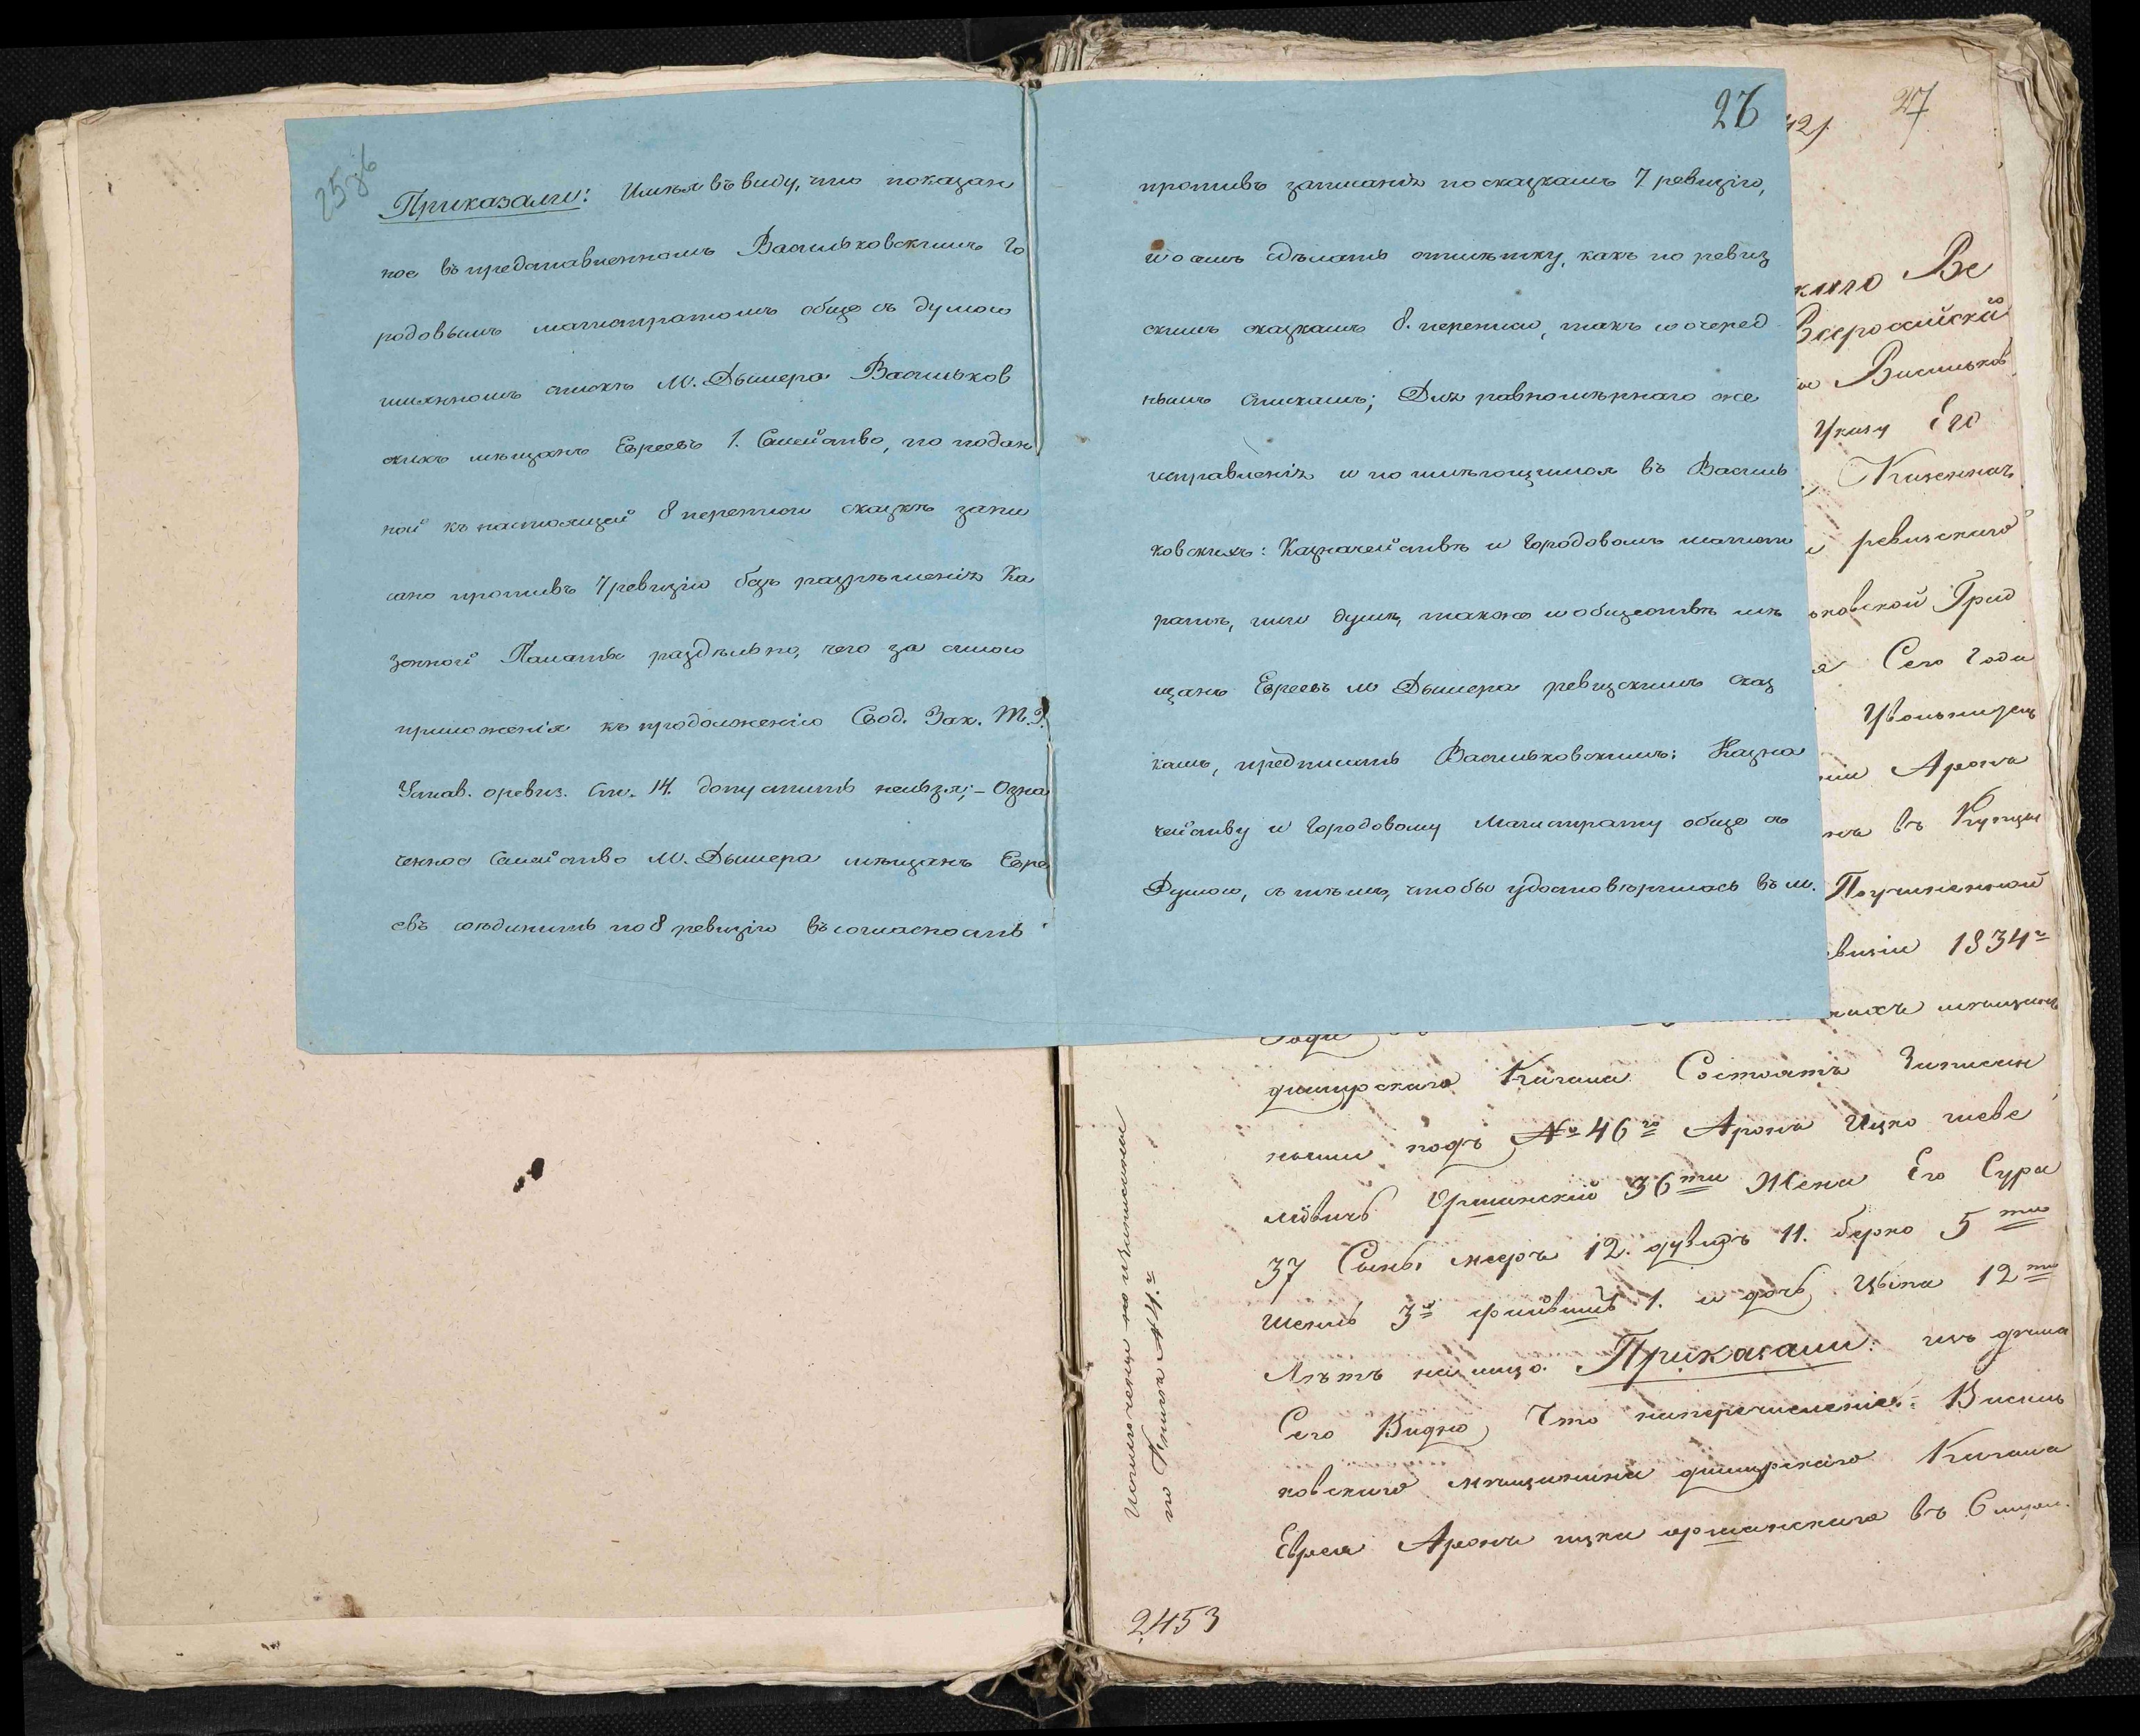 25зв
Приказали: Имѣя въ виду, что показан
ное въ представленномъ Васильковскимъ Го
родовымъ магистратомъ обще съ думою
именномъ спискѣ М. Дымера Васильков
скихъ мѣщанъ Евреевъ 1. Семейство, по подан
ной къ настоящей 8 переписи сказкѣ запи
сано противъ 7 ревизіи безъ разрѣшенія Ка
зенной Палаты раздѣльно, чего за силою
приложенія къ продолженію Свод. Зак. Т. 9.
Устав. о ревиз. Ст. 14. допустить нельзя; – Озна
ченное Семейство М. Дымера мѣщанъ Евре
евъ соѣдинить по 8 ревизіи въ согласность
26
противъ записанія по сказкамъ 7 ревизіи,
и о семъ сдѣлать отмѣтку, какъ по ревиз
скимъ сказкамъ 8. переписи, такъ и очеред
нымъ спискамъ; Для равномѣрнаго же
исправленія и по имѣющимся въ Василь
ковскихъ: Казначействѣ и Городовомъ магист
ратѣ, или думѣ, также и обществѣ мѣ
щанъ Евреевъ М Дымера ревизскимъ сказ
камъ, предписать Васильковскимъ: Казна
чейству и Городовому Магистрату обще съ
Думою, съ тѣмъ, чтобы удостовѣрились въ М.
421
27
каго Ве
Всероссійскаго
Васильков
Указу Его
Казенная
ревизскаго
ьковской Град
Сего Года
Увольнизец
Арона
въ Купцы
Поучиненной
евизіи 1834г
мѣщанъ
Года
дымирскаго Кагала Состоятъ Записан
ными подъ № 46го Аронъ Ицко шеве
левичъ Оршанскій 36ти Жена Его Сура
37 Сыны меръ 12. дувидъ 11. берко 5ти
3й 1. и дочь Цыпа 12ти
Лѣтъ на лицо. Приказали: изъ дѣла
Сего Видно, Что наперечисленіе Василь
ковскаго мѣщанина дымирскаго Кагала
Еврея Арона ицки оршанскаго въ
по Книгѣ № 4.й
2453